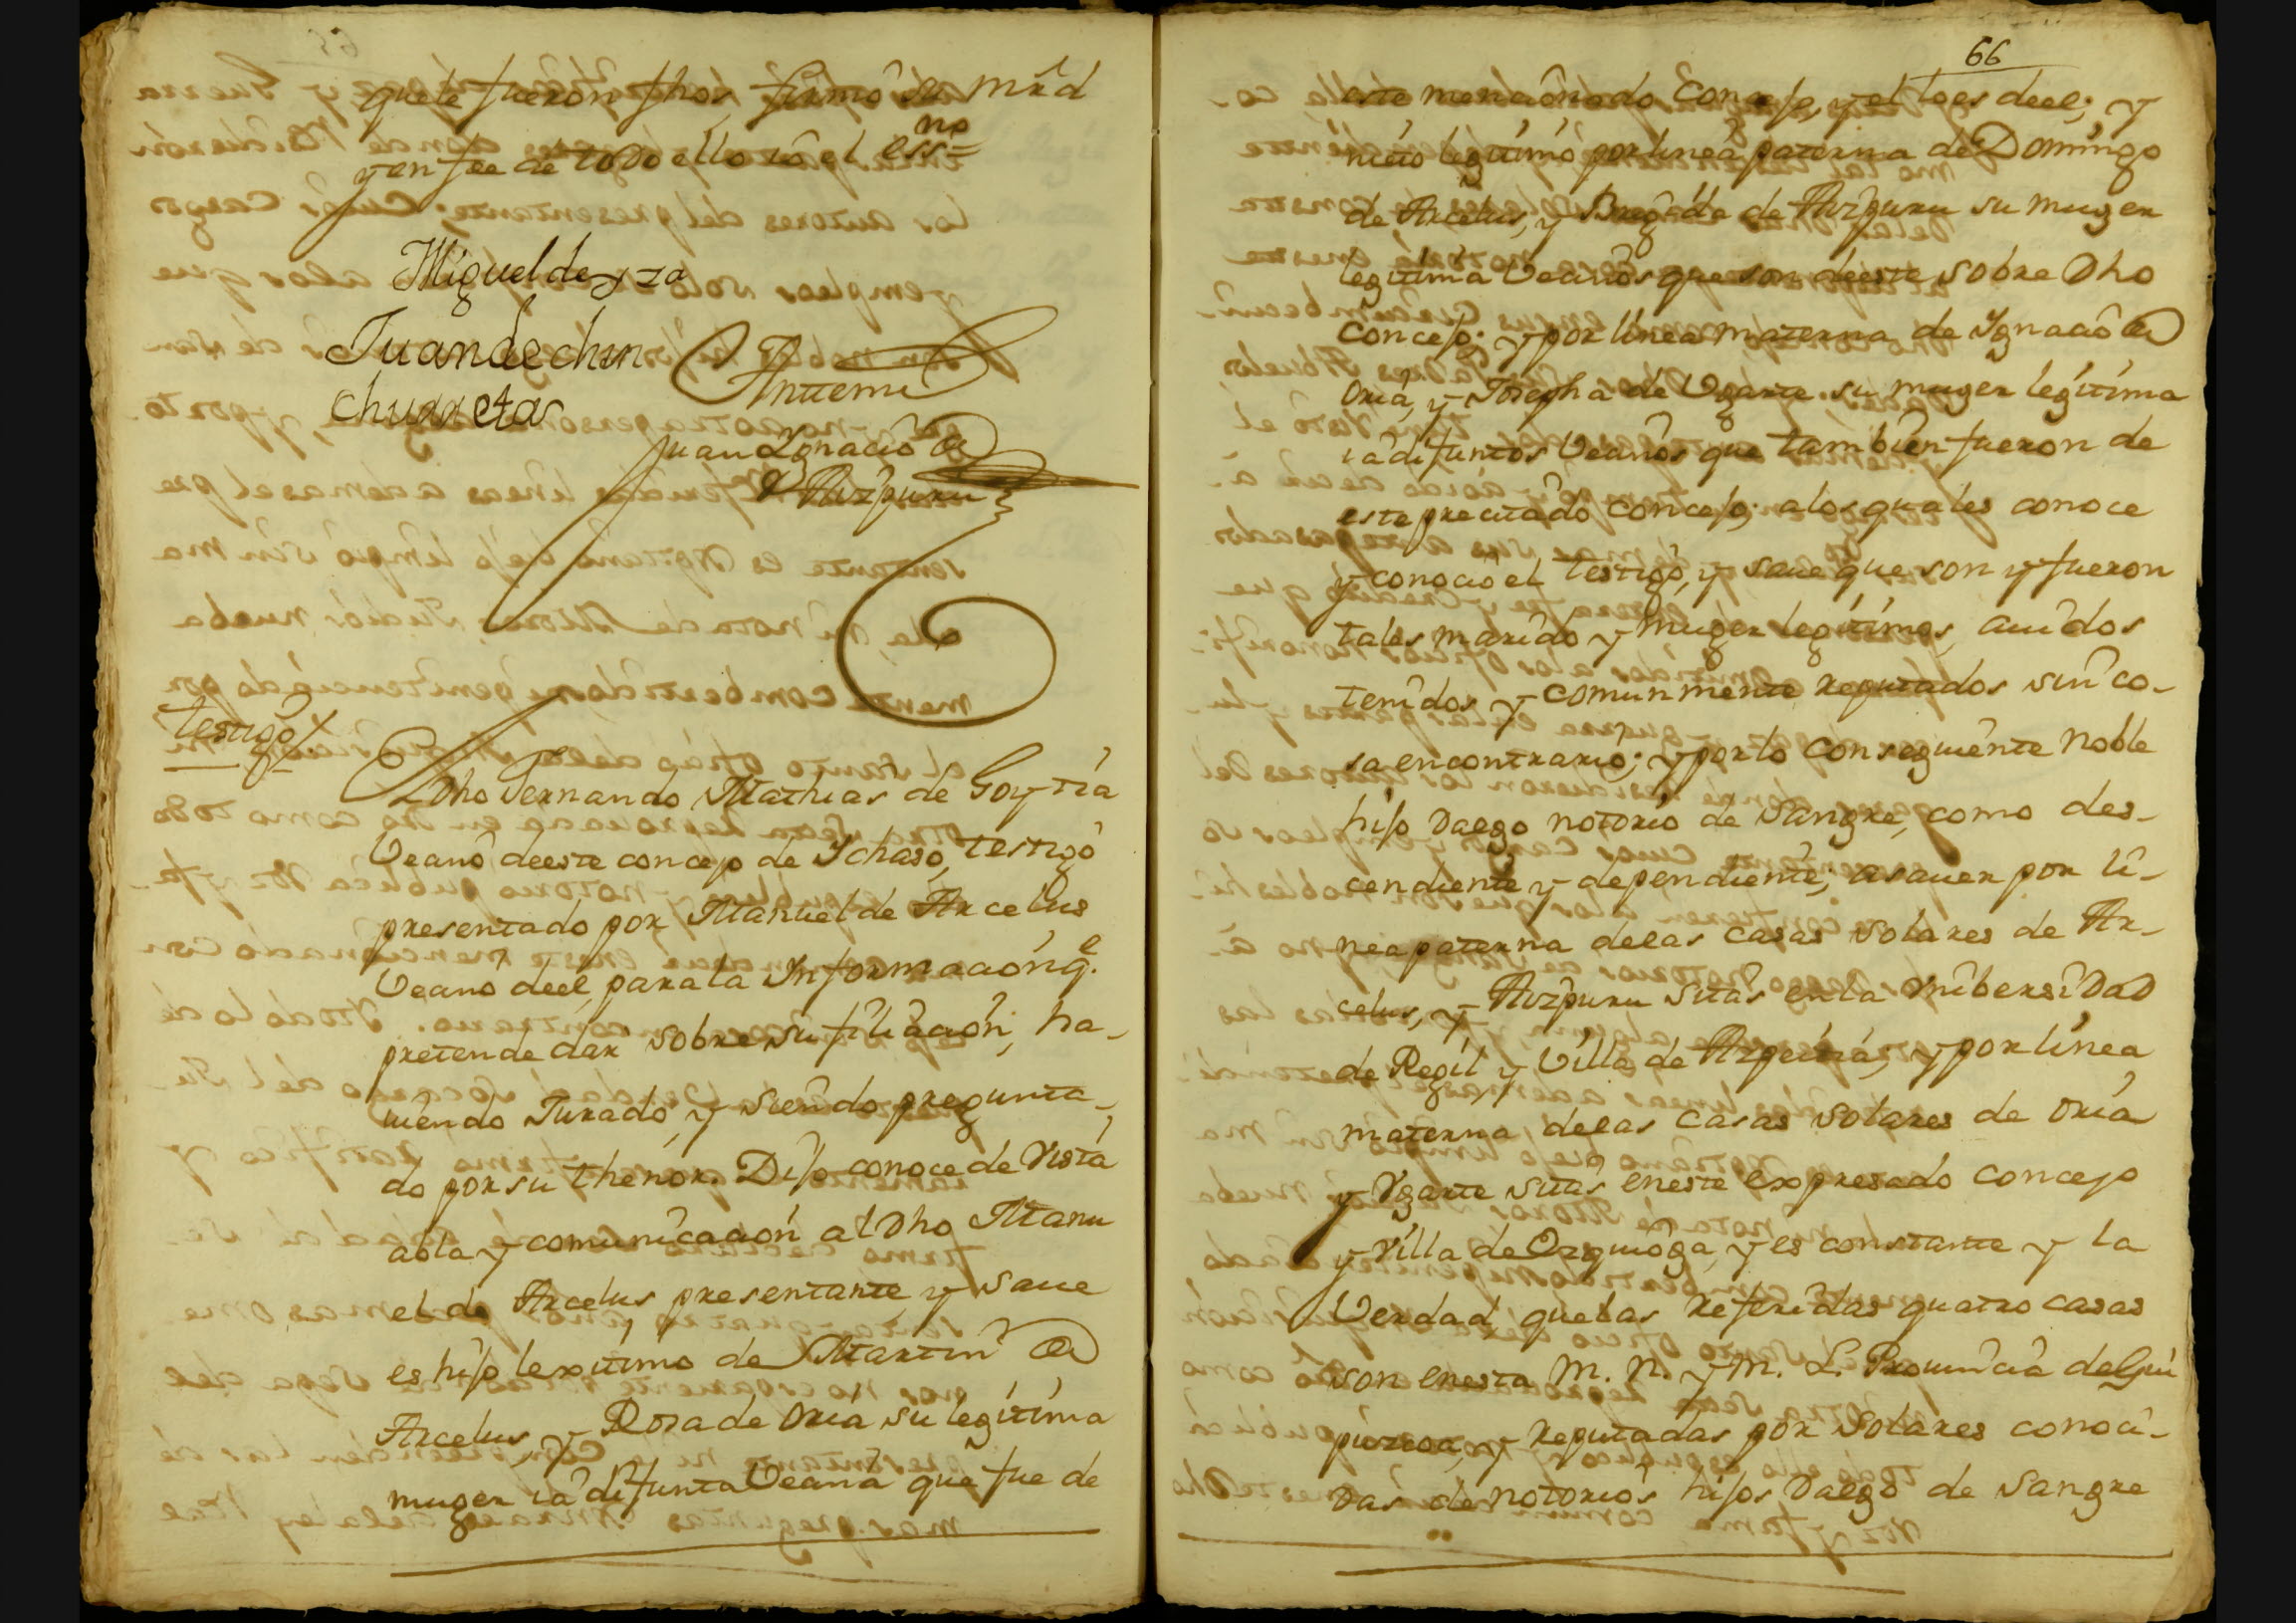 que le fueron fhos, firmó su mrd
y en fee de todo ello io el essno
Miguel de yza
Juan de chin
churreta
Antemi
Juan Ygnacio de
Aizpuru
testigo
El Dho Fernando Mathias de Goytia
Vecino deeste concejo de Ychaso, testigo
presentado por Manuel de Arcelus
Vecino deel, para la Informacion, q.e
pretende dar sobre su filiacion, ha-
uiendo Jurado, y siendo pregunta-
do por su thenor. Dijo conoce de Vista
abla y comunicacion al Dho Manu
el de Arcelus presentante, y saue
es hijo lexitimo de Martin de
Arcelus, y Rosa de Oria su legitima
muger ia difunta Vecina que fue de
66
este mencionado Concejo, y el lo es deel; y
nieto legitimo por linea paterna de Domingo
de Arcelus, y Brigida de Aizpuru su muger
legitima Vecinos que son deeste sobre Dho
Concejo; y por linea materna de Ygnacio de
Oria, y Josepha de Ugarte su muger legitima
ia difuntos Vecinos que tambien fueron de
este precitado Concejo; a los quales conoce
y conocio el testigo, y saue que son y fueron
tales marido y muger legitimos, auidos
tenidos y comunmente reputados sin co-
sa en contrario; y por lo conseguiente noble
hijo Dalgo notorio de Sangre, como des-
cendiente y dependiente; asauer por li-
nea paterna delas casas solares de Ar-
celus, y Aizpuru sitas en la Vnibersidad
de Regil y Villa de Azpeitia; y por linea
materna, delas casas solares de Oria
y Ugarte sitas eneste expresado concejo
y Villa de Ozquioga, y es constante y la
Verdad que las referidas quatro casas
son enesta M. N. y M. L. Prouincia de Gui
puzcoa, y reputadas por Solares conoci-
Das de notorios hijos Dalgo de Sangre